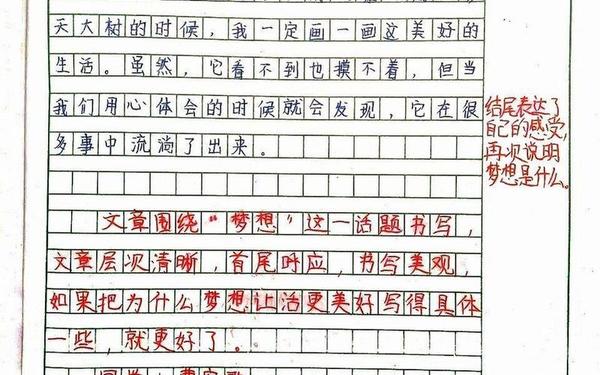 天大树的时候，我一定画一画这美好的
生活。虽然，它看不到也摸不着，但当
我们用心体会的时候就会发现，它在很
多事中流淌了出来。
结尾表达了
自己的感受，
再次说明
梦想是什么。
文章围绕“梦想”这一话题书写，
文章层次清晰，首尾呼应，书写美观，
如果把为什么梦想让活更美好写得具体
一些，就更好了。